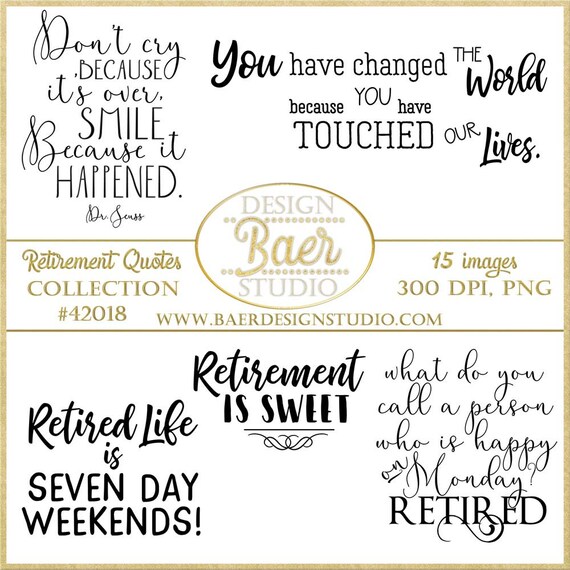 Don't cry
BECAUSE
it's over,
SMILE
Because it
HAPPENED.
Dr. Seuss
You have changed THE World
because YOU have
TOUCHED OUR Lives.
DESIGN
Baer
STUDIO
Retirement Quotes
COLLECTION
#42018
15 images
300 DPI, PNG
WWW.BAERDESIGNSTUDIO.COM
Retired Life
is
SEVEN DAY
WEEKENDS!
Retirement
IS SWEET
what do you
call a person
who is happy
on Monday?
RETIRED